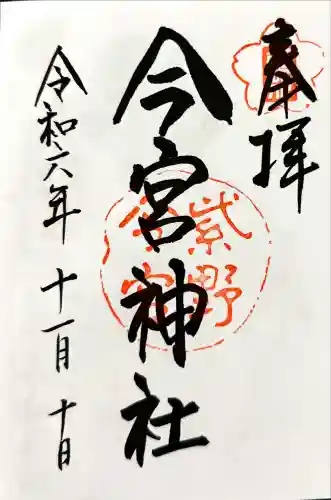 奉拝
今宮神社
紫野
今宮
令和六年 十一月 十日